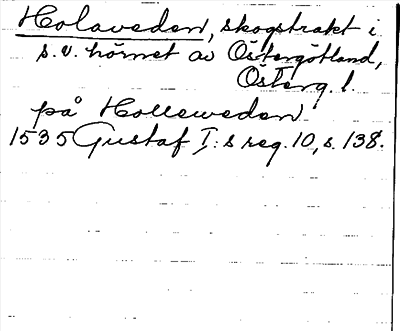 Holaveden, skogstrakt i
s.v. hörnet av Östergötland,
Österg. l.
på Holleweden
1535 Gustaf I:s reg. 10, s. 138.